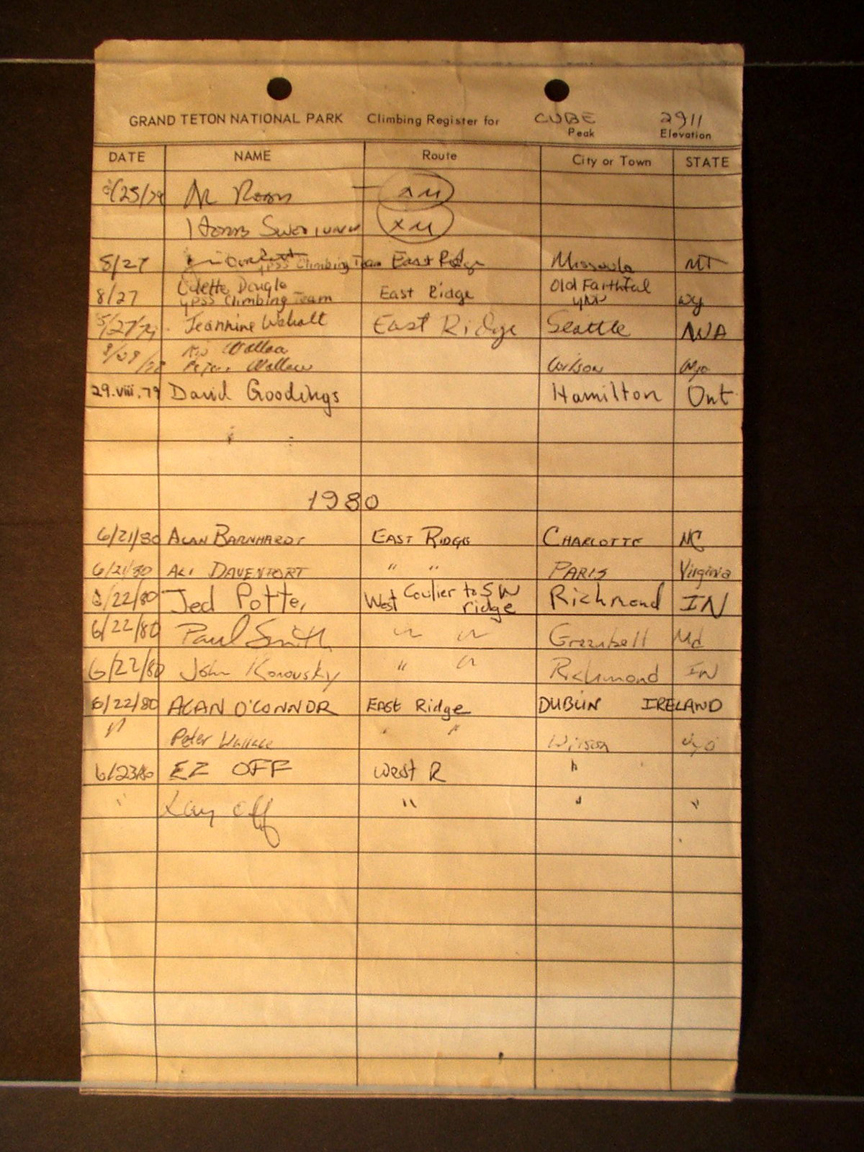 GRAND TETON NATIONAL PARK Climbing Register for CUBE 2911
Peak Elevation
DATE NAME Route City or Town STATE
/25/79 Al XM
XM
8/27 YPSS Climbing Team East Ridge Missoula MT
8/27 Odette Old Faithful
YPSS Climbing Team East Ridge YNP WY
8/27/79 Jeannine Walratt East Ridge Seattle WA
Wallace
Peter Wallace Wilson Wyo
29.viii.79 David Goodings Hamilton Ont
1980
6/21/80 ALAN BARNHARDT EAST RIDGE CHARLOTTE NC
6/21/80 ALI DAVENPORT " " PARIS Virginia
6/22/80 Jed Potter West Coulier to SW ridge Richmond IN
6/22/80 Paul Smith " " Greenbelt Md
6/22/80 John Konovsky " " Richmond IN
6/22/80 ALAN O'CONNOR EAST Ridge DUBLIN IRELAND
" Peter Wallace " " Wilson Wyo
6/23/80 EZ OFF West R "
" Lay off " " "